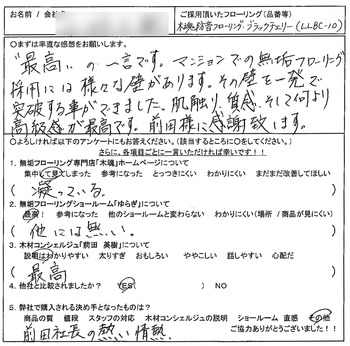 お名前／会社名
ご採用頂いたフローリング（品番等）
木魂防音フローリング・ブラックチェリー（LLBC-10）
○まずは率直な感想をお願いします。
"最高"の一言です。マンションでの無垢フローリング
採用には様々な壁があります。その壁を一発で
突破する事ができました、肌触り、質感、そして何より
高級感が最高です。前田様に感謝致します。
○よろしければ以下のアンケートにもお答えください。（該当するところに○をしてください）
さらに、各項目ごとに一言いただければ幸いです！！
1. 無垢フローリング専門店「木魂」ホームページについて
集中して見てしまった　参考になった　とっつきにくい　わかりにくい　まだまだ改善してほしい
（ 凝っている。 ）
2. 無垢フローリングショールーム「ゆらぎ」について
最高！　参考になった　他のショールームと変わらない　わかりにくい（場所 / 商品が見にくい）
（ 他には無い。 ）
3. 木材コンシェルジュ「前田　英樹」について
説明はわかりやすい　太りすぎ　おもしろい　ややこしい　話しやすい　心配だ
（ 最高 ）
4. 他社と比較されましたか？　YES　NO
5. 弊社で購入される決め手となったものは？
商品の質　値段　スタッフの対応　木材コンシェルジュの説明　ショールーム　直感　その他
前田社長の熱い情熱
ご協力ありがとうございました！！